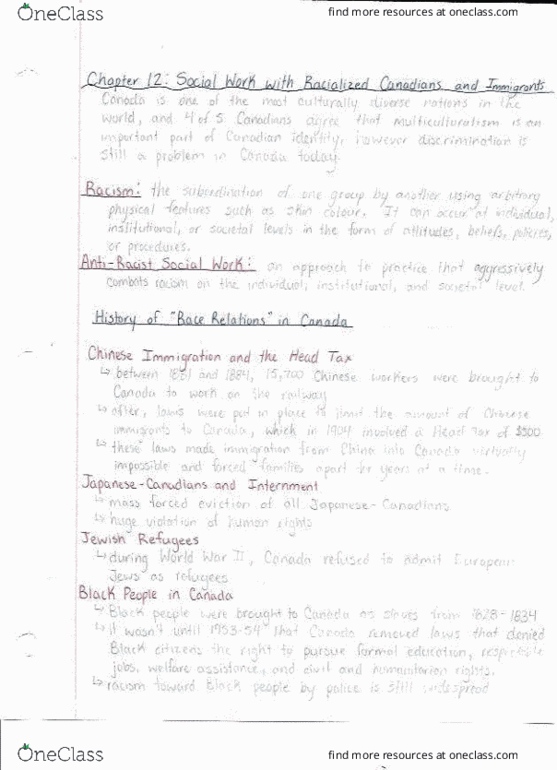 OneClass
find more resources at oneclass.com
Chapter 12: Social Work with Racialized Canadians and Immigrants
Canada is one of the most culturally diverse nations in the
world, and 4 of 5 Canadians agree that multiculturalism is an
important part of Canadian identity, however discrimination is
still a problem in Canada today.
Racism: the subordination of one group by another using arbitrary
physical features such as skin colour. It can occur at individual,
institutional, or societal levels in the form of attitudes, beliefs, policies,
or procedures.
Anti-Racist Social Work: an approach to practice that aggressively
combats racism on the individual, institutional, and societal level.
History of "Race Relations" in Canada
Chinese Immigration and the Head Tax
↳ between 1881 and 1884, 15,700 Chinese workers were brought to
Canada to work on the railway
↳ after, laws were put in place to limit the amount of Chinese
immigrants to Canada, which in 1904 involved a Head Tax of $500
↳ these laws made immigration from China into Canada virtually
impossible and forced families apart for years at a time.
Japanese-Canadians and Internment
↳ mass forced eviction of all Japanese-Canadians
↳ huge violation of human rights
Jewish Refugees
↳ during World War II, Canada refused to admit European
Jews as refugees
Black People in Canada
↳ Black people were brought to Canada as slaves from 1628-1834
↳ it wasn't until 1953-54 that Canada removed laws that denied
Black citizens the right to pursue formal education, respectable
jobs, welfare assistance, and civil and humanitarian rights.
↳ racism toward Black people by police is still widespread
OneClass
find more resources at oneclass.com